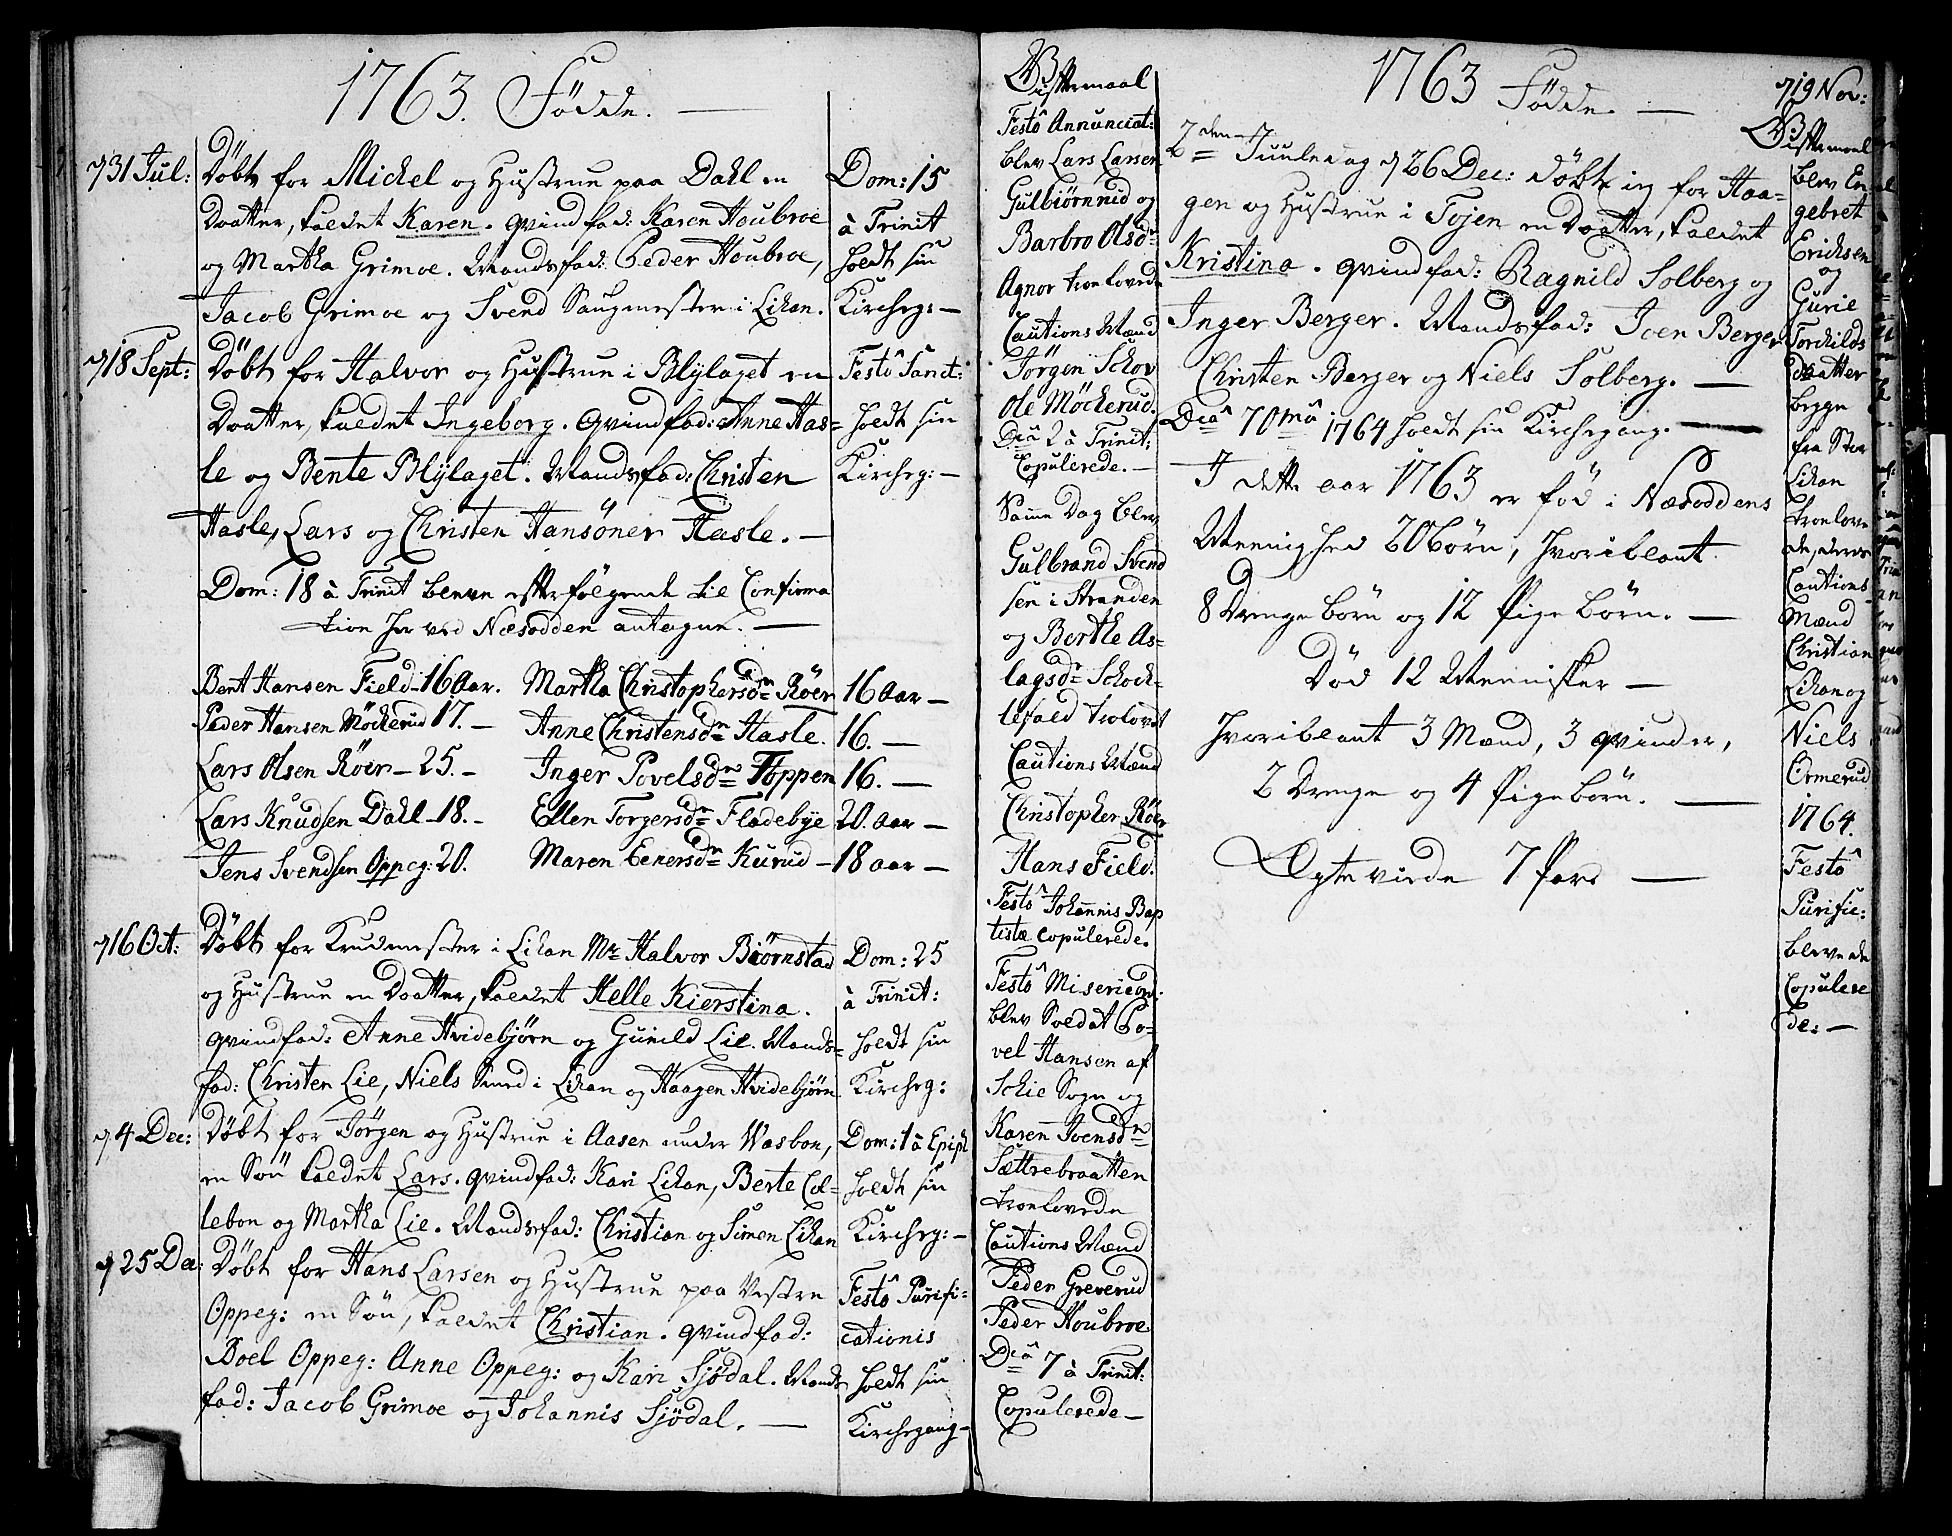 1763. Födde.
d 31 Jul:
Döbt for Mickel og Hustrue paa Dahl en
Daatter, kaldet Karen. Qvindfad: Karen Houbroe
og Martha Grimoe. Mandsfad: Peder Houbroe,
Jacob Grimoe og Svend Saugmester i Lihan.
Dom: 15
à Trinit
holdt sin
Kircheg: —
d 18 Sept:
Döbt for Halvor og Hustrue i Blÿlaget en
Daatter, kaldet Ingeborg. Qvindfad: Anne Has=
le og Bente Blÿlaget. Mandsfad: Christen
Hasle, Lars og Christen Hansöner Hasle. —
Festô Sanct:
holdt sin
Kircheg: —
Dom: 18 à Trinit bleve efterfölgende til Confirma
tion her ved Næsodden antagne. —
Bent Hansen Field — 16 Aar. Martha Christophersdn Röer 16 Aar —
Peder Hansen Möckerud 17. — Anne Christensdn Hasle. 16. —
Lars Olsen Röer — 25. — Inger Povelsdn Toppen 16. —
Lars Knudsen Dahl — 18. — Ellen Torgersdn Fladebye 20. Aar —
Jens Svendsen Oppeg: 20. Maren Eenersdn Kurud — 18 aar —
d 16 Oct:
Döbt for Krudmester i Lihan Mr Halvor Biörnstad
og Hustrue en Daatter, kaldet Helle Kierstina.
Qvindfad: Anne Hvidebjörn og Gunild Lie. Mands=
fad: Christen Lie, Niels Smed i Lihan og Haagen Hvidebjörn
Dom: 25
à Trinit:
holdt sin
Kircheg:
d 4 Dec:
Döbt for Jörgen og Hustrue i Aasen under Wasbon,
en Sön kaldet Lars. Qvindfad: Kari Lihan, Berte Col=
lebon og Martha Lie. Mandsfad: Christian og Simen Lihan
Dom: 1 à Epiph
holdt sin
Kircheg: —
d 25 Dec:
Döbt for Hans Larsen og Hustrue paa Vestre
Oppeg: en Sön, kaldet Christian. Qvindfad:
Boel Oppeg: Anne Oppeg: og Kari Sjödal. Mands
fad: Jacob Grimoe og Johannis Sjödal. —
Festô Purifi=
cationis
holdt sin
Kirchegang —
Ægtemaal
Festô Annunciat:
blev Lars Larsen
Gulbiörnrud og
Barbro Olsdr
Agnor troelovede
Cautions Mænd
Jörgen Schov
Ole Möckerud.
Dca 2 à Trinit:
Copulerede. —
Samme Dag blev
Gulbrand Svend
sen i Stranden
og Berthe As=
lagsdr Schock=
lefald trolovet
Cautions Mænd
Christopher Röer
Hans Field.
Festô Johannis Bap
tistæ copulerede.
Festô Misericord:
blev Soldat Po=
vel Hansen af
Schie Sogn og
Karen Joensdn
Sættrebraatten
troelovede
Cautions Mænd
Peder Greverud
Peder Houbroe
Dca 7 à Trinit:
Copulerede —
1763 Födde. —
2den Juuledag d 26 Dec: döbt ieg for Haa=
gen og Hustrue i Tojen en Daatter, kaldet
Kristina. Qvindfad: Ragnild Solberg og
Inger Berger. Mandsfad: Joen Berger
Christen Berger og Niels Solberg. —
Dca 70mâ 1764 holdt sin Kirchegang. —
I dette aar 1763 er föd i Næsoddens
Menighed 20 Börn, hvoriblant
8 Drenge börn og 12 Pige börn. —
Död 12 Mennisker —
hvoriblant 3 Mænd, 3 qvinder,
2 Drenge og 4 Pige börn. —
Ægteviede 7 Par —
d 19 Nov:
Ægtemaal
blev En
gebret
Ericksen
og
Gurie
Torchilds
daatter
begge
fra Stor
Lihan
troelove
de, deres
Cautions
Mænd
Christian
Lihan og
Niels
Ormerud
1764.
Festô
Purific:
bleve de
Copulere
de: —